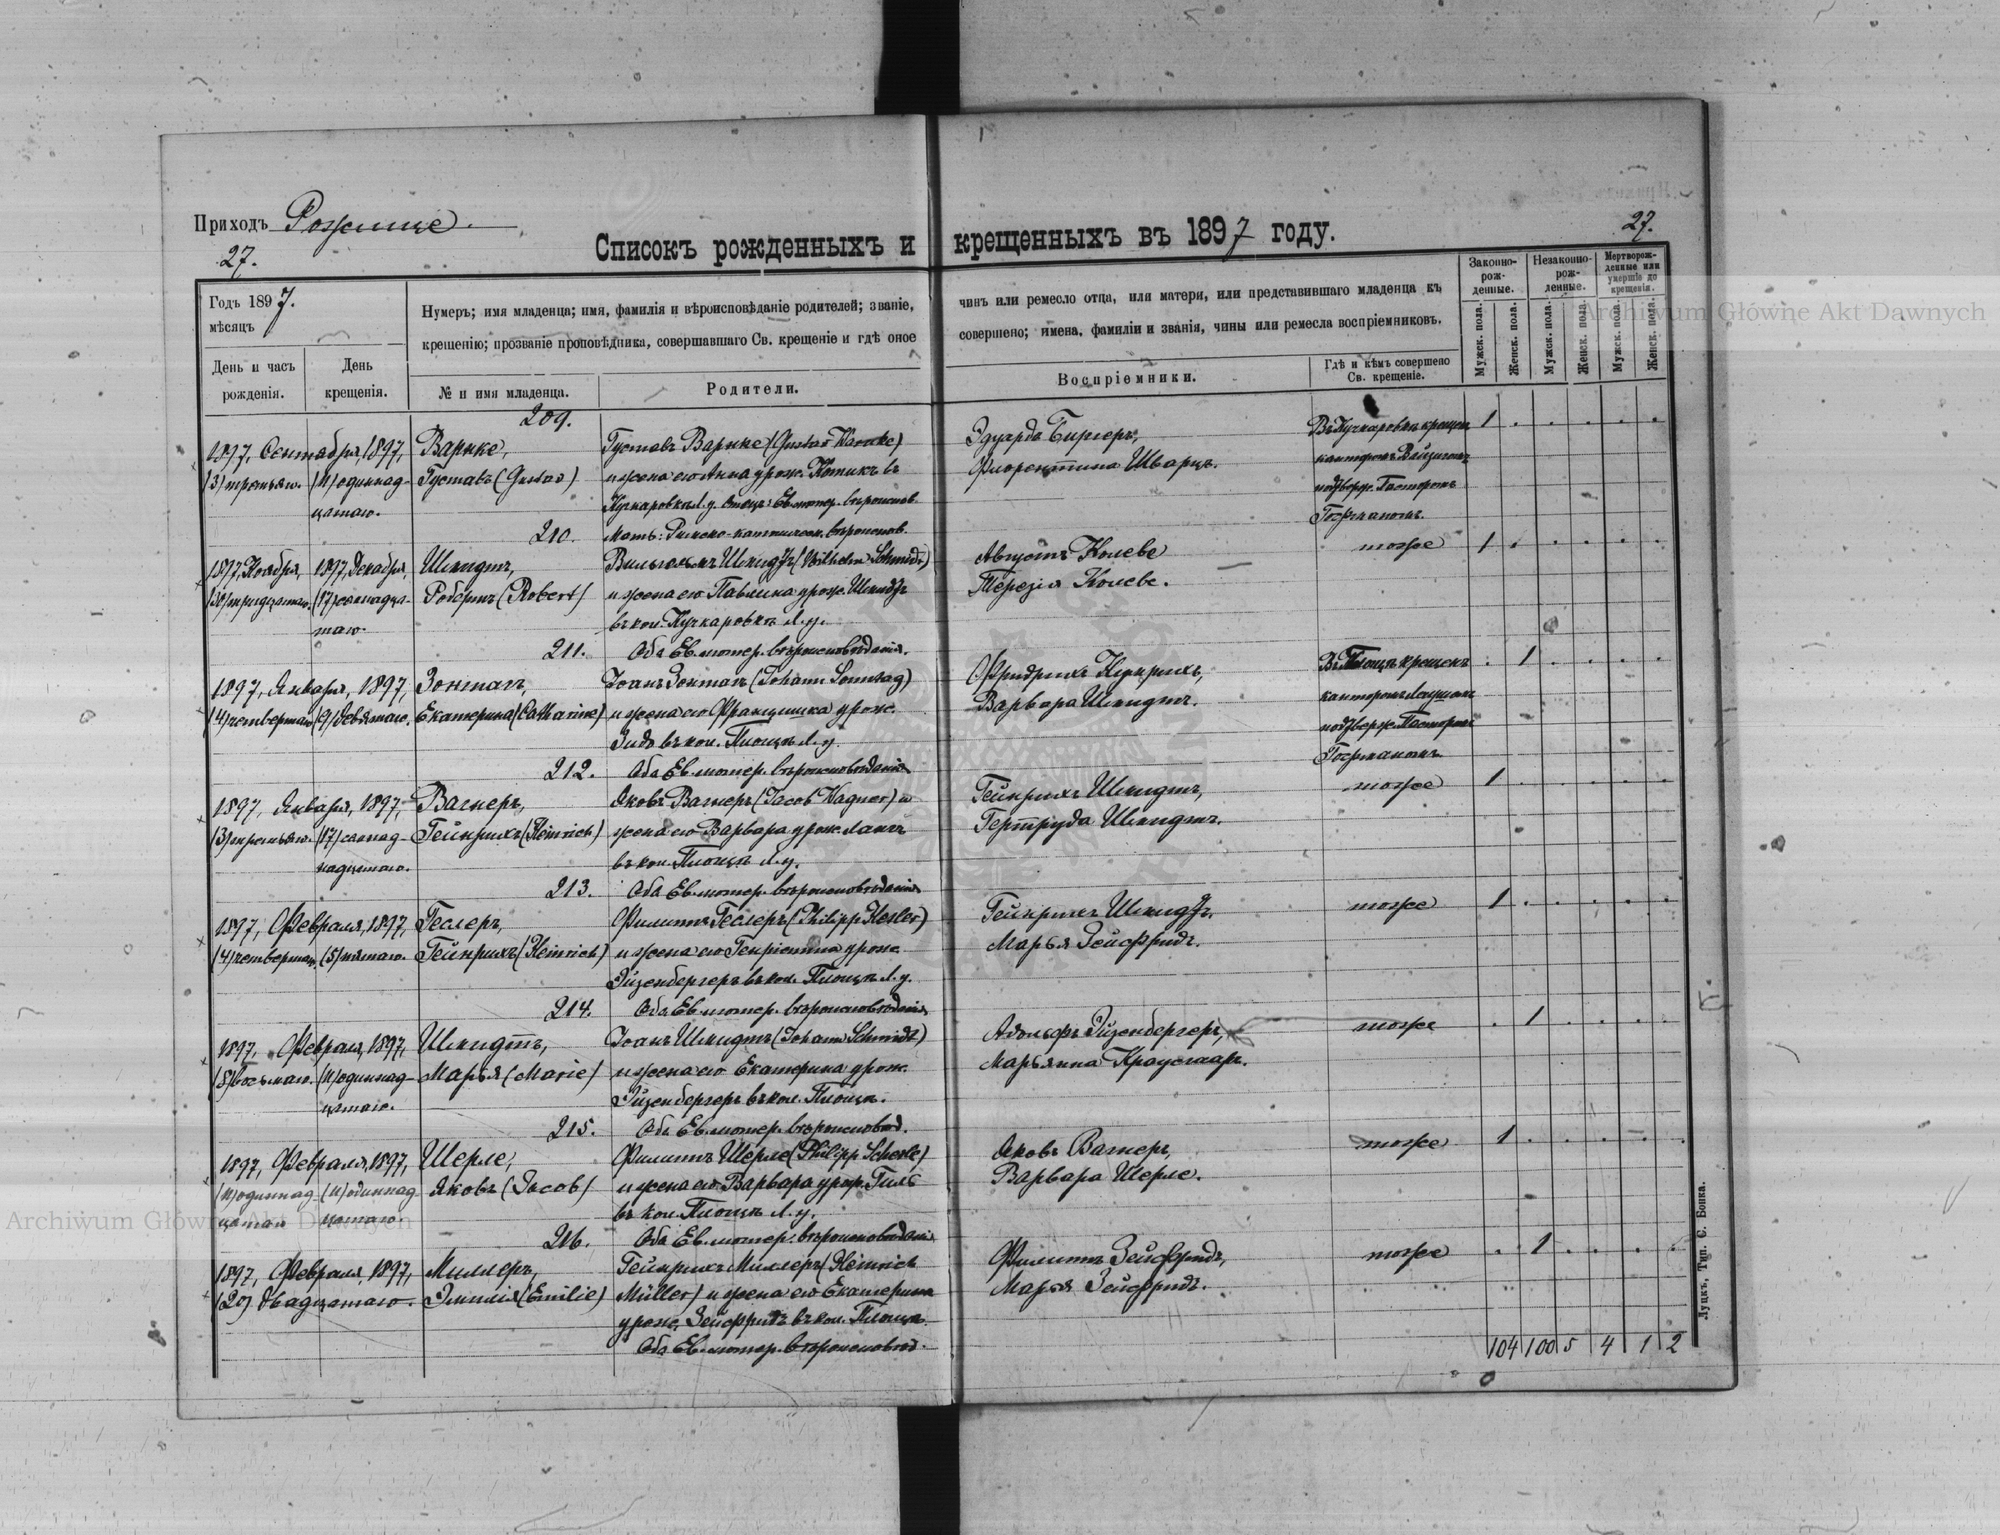 Приходъ Рожище.
27.
27.
Списокъ рожденныхъ и крещенныхъ въ 1897 году.
Годъ 1897.
мѣсяцъ
День и часъ рожденія.
День крещенія.
Нумеръ; имя младенца; имя, фамилія и вѣроисповѣданіе родителей; званіе, чинъ или ремесло отца, или матери, или представившаго младенца къ
крещенію; прозваніе проповѣдника, совершавшаго Св. крещеніе и гдѣ оное совершено; имена, фамиліи и званія, чины или ремесла воспріемниковъ.
№ и имя младенца.
Родители.
Воспріемники.
Гдѣ и кѣмъ совершено Св. крещеніе.
Законно-рож-денные.
Незаконно-рож-денные.
Мертворож-денные или умершіе до крещенія.
Мужск. пола.
Женск. пола.
Мужск. пола.
Женск. пола.
Мужск. пола.
Женск. пола.
209.
1897, Сентября, 1897, Варнке, Густавъ Варнке (Gustav Warnke) Эдуардъ Бергеръ, 1
(3) третьяго. (11) одиннад- Густавъ (Gustav) и жена его Анна урож. Флорентина Шварцъ. канторомъ
цатаго. подтверж. Пасторомъ
Гофманомъ.
210. Мать: Римско-католическ. вѣроисповѣд.
1897, Ноября, 1897, Декабря, Шмидтъ, Вильгельмъ Шмидтъ (Wilhelm Schmidt) Августъ тоже 1
(30) тридцатаго. (17) семнадца- Робертъ (Robert) и жена его Павлина урож. Шмидтъ Терезія
таго. въ кол. Кучкаровкѣ Л. у.
211. Оба Ев. лютер. вѣроисповѣданія.
1897, Января, 1897, Зонтагъ, Іоанъ Зонтагъ (Johann Sonntag) Фридрихъ Въ Площѣ крещенъ 1
(4) четвертаго (9) девятаго. Екатерина (Catharine) и жена его Францишка урож. Варвара Шмидтъ. канторомъ
въ кол. Площѣ Л. у. подтверж. Пасторомъ
Гофманомъ
212. Оба Ев. лютер. вѣроисповѣданія
1897, Января, 1897, Вагнеръ, Яковъ Вагнеръ (Jacob Wagner) и Гейнрихъ Шмидтъ, тоже 1
(3) третьяго. (17) семнад- Гейнрихъ (Heinrich) жена его Варвара урож. Лангъ Гертруда Шмидтъ.
надцатаго. въ кол. Площѣ Л. у.
213. Оба Ев. лютер. вѣроисповѣданія
1897, Февраля, 1897, Геслеръ, Филиппъ Геслеръ (Philipp Hesler) Гейнрихъ Шмидтъ. тоже 1
(4) четвертаго (5) пятаго. Гейнрихъ (Heinrich) и жена его Генріетта урож. Марья Зейффридъ.
Эйзенбергеръ въ кол. Площѣ Л. у.
214. Оба Ев. лютер. вѣроисповѣданія
1897, Февраля, 1897, Шмидтъ, Іоанъ Шмидтъ (Johann Schmidt) Адольфъ Эйзенбергеръ, тоже 1
(8) восьмаго. (11) одиннад- Марья (Marie) и жена его Екатерина урож. Марьянна
цатаго. Эйзенбергеръ въ кол. Площѣ.
215. Оба Ев. лютер. вѣроисповѣд.
1897, Февраля, 1897, Шерле, Филиппъ Шерле (Philipp Scherle) Яковъ Вагнеръ, тоже 1
(11) одиннад- (11) одиннад- Яковъ (Jacob) и жена его Варвара урож. Варвара Шерле.
цатаго цатаго въ кол. Площѣ Л. у.
216. Оба Ев. лютер. вѣроисповѣданія
1897, Февраля, 1897, Миллеръ, Гейнрихъ Миллеръ (Heinrich Филиппъ Зейффридъ, тоже 1
(20) двадцатаго. Эмилія (Emilie) Müller) и жена его Екатерина Марья Зейффридъ.
урож. Зейффридъ въ кол. Площѣ
Оба Ев. лютер. вѣроисповѣд.
104 100 5 4 1 2
Луцкъ, Тип. С. Бонка.
Archiwum Główne Akt Dawnych
Archiwum Główne Akt Dawnych